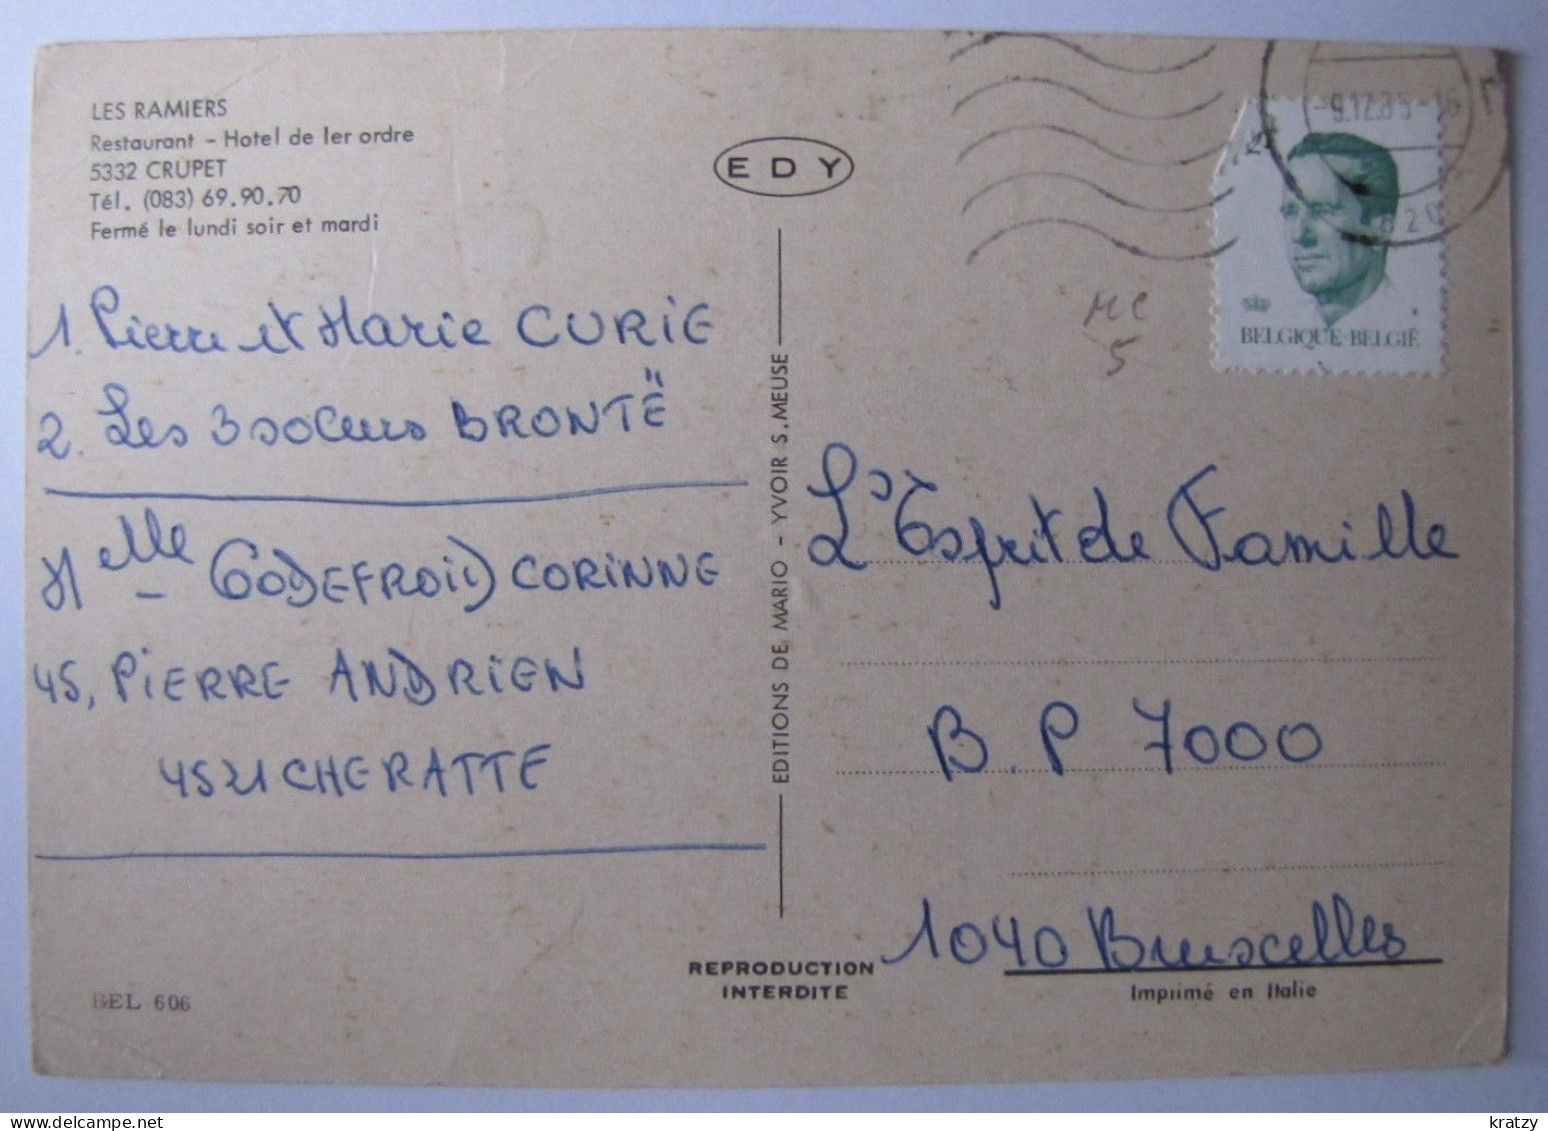 LES RAMIERS
Restaurant - Hotel de 1er ordre
5332 CRUPET
Tél. (083) 69.90.70
Fermé le lundi soir et mardi
1. Pierre et Marie CURIE
2. Les 3 soeurs BRONTË
Melle GODEFROID CORINNE
45, PIERRE ANDRIEN
4521 CHERATTE
BEL 606
EDY
EDITIONS DE MARIO - YVOIR S. MEUSE
REPRODUCTION
INTERDITE
-9.12.85-16
BELGIQUE-BELGIË
MC
5
L'Esprit de Famille
B.P 7000
1040 Bruxelles
Imprimé en Italie
kratzy